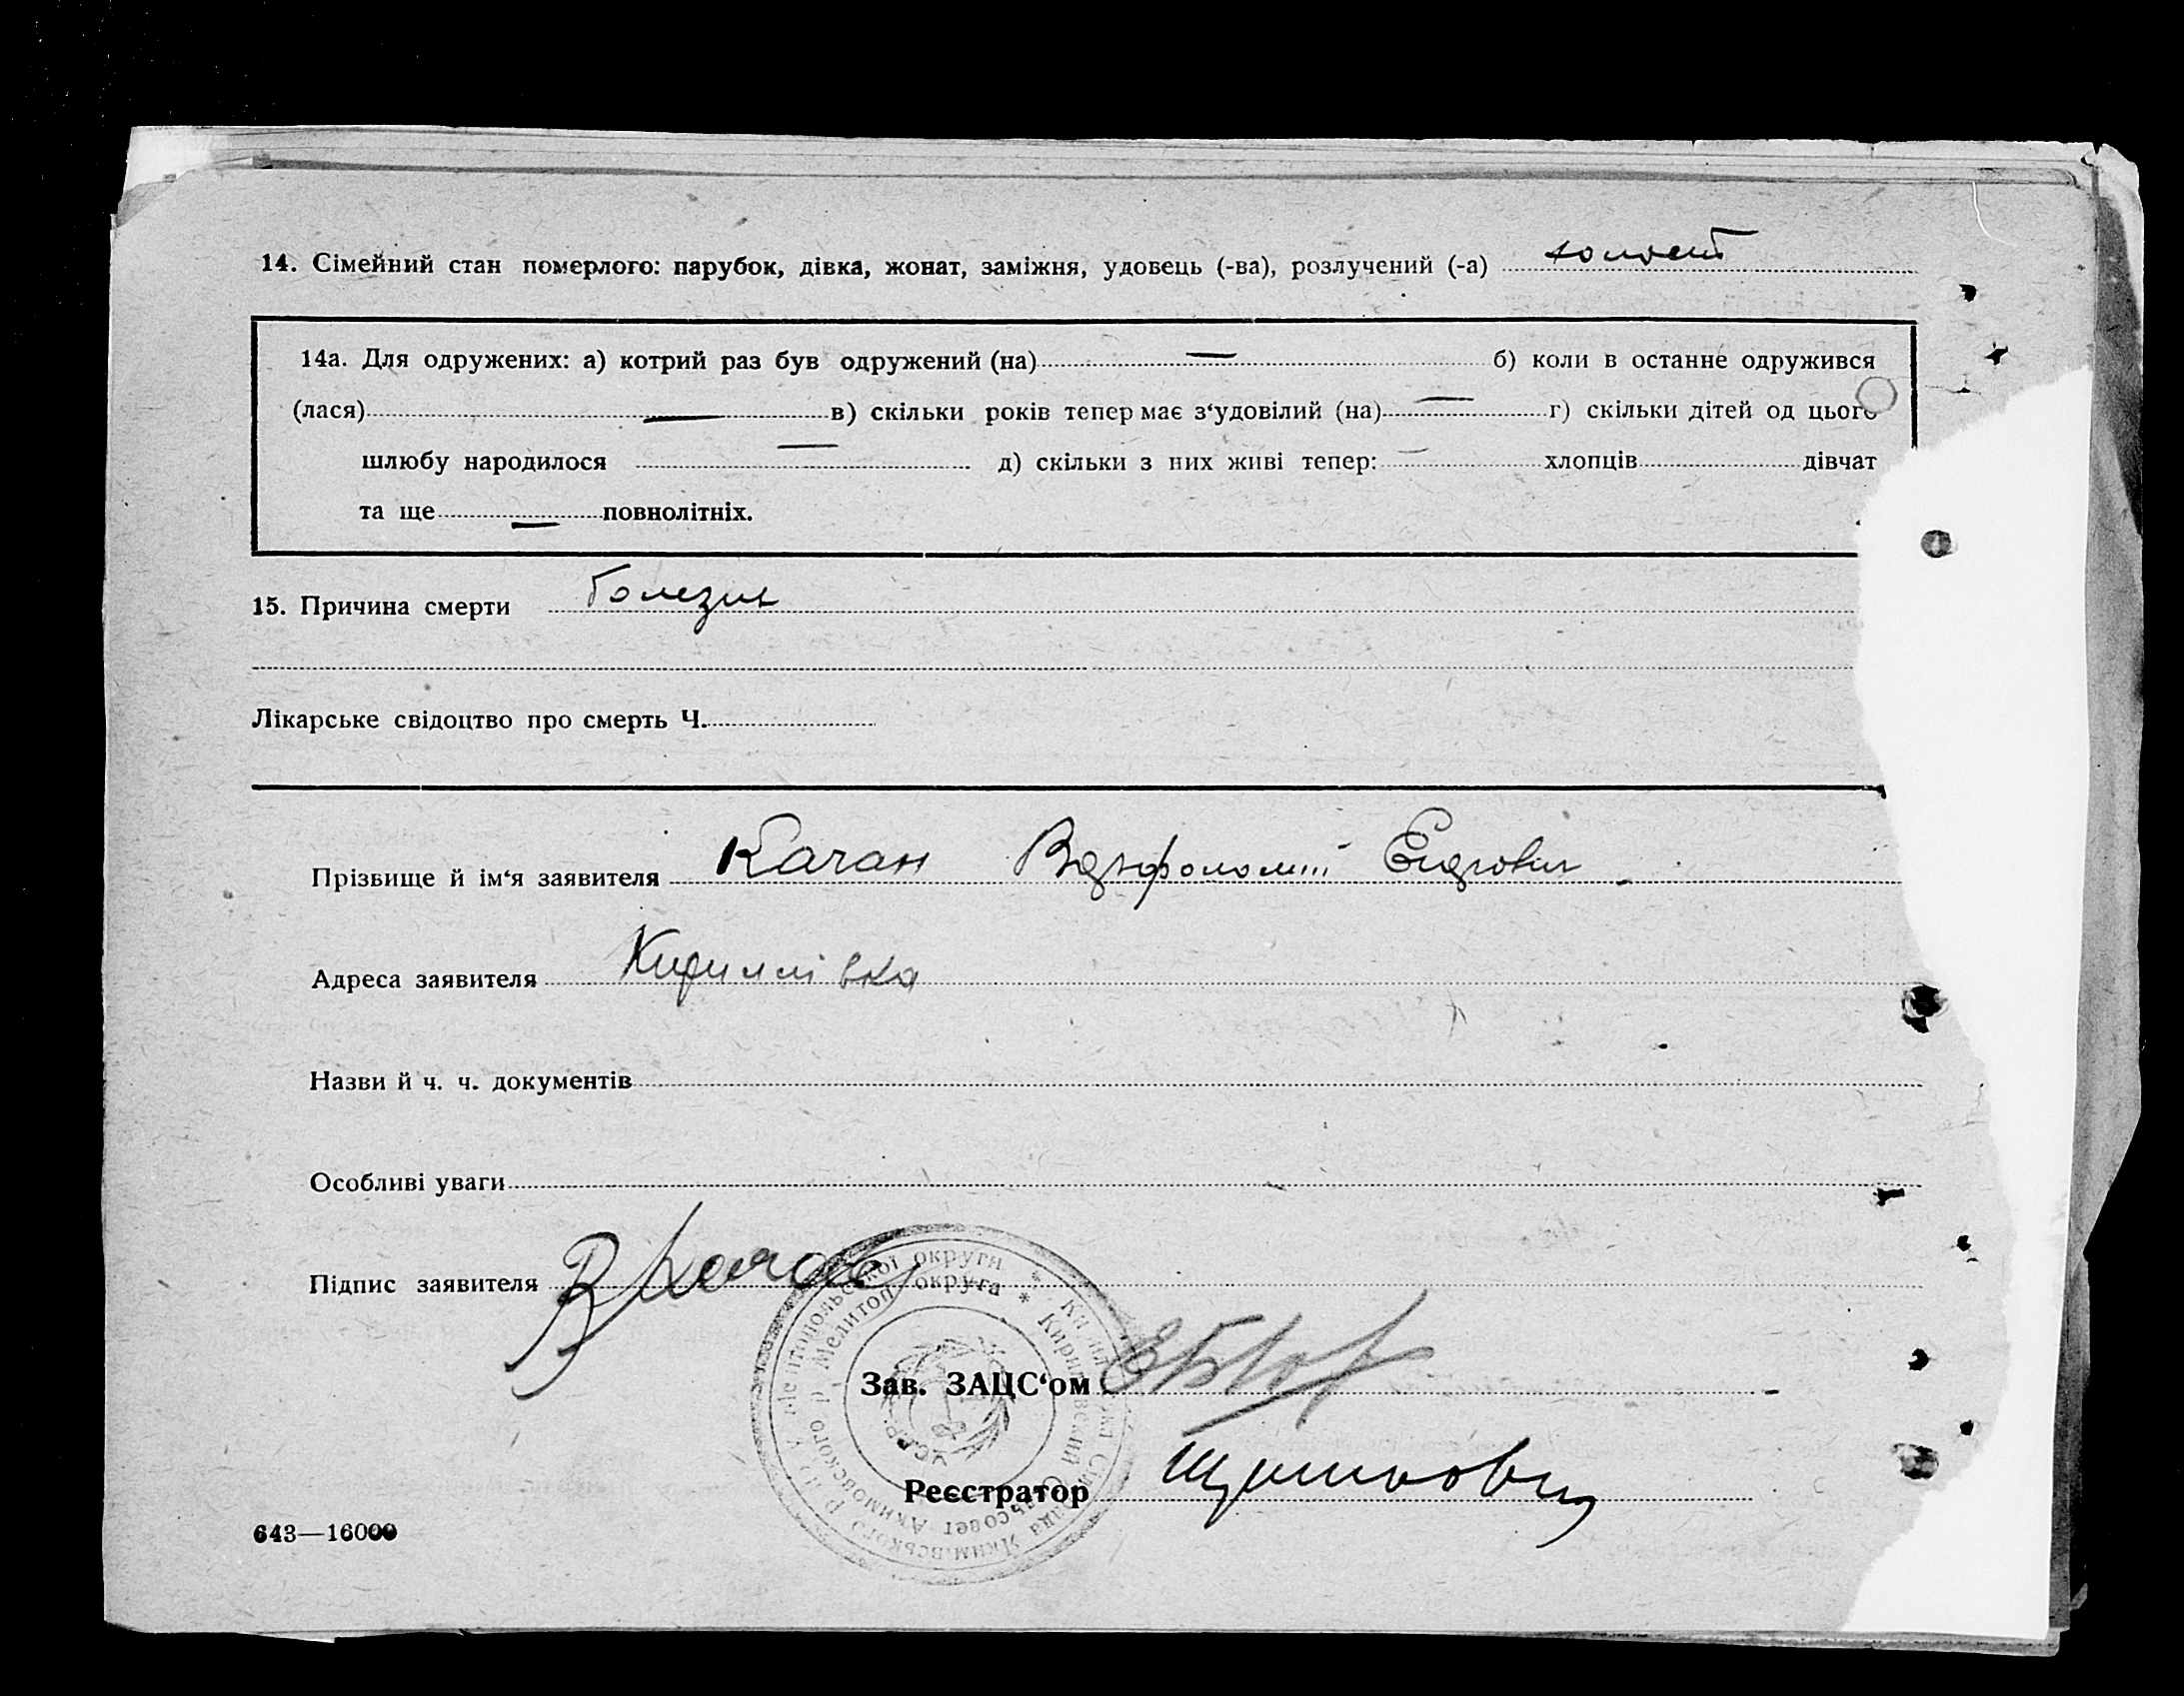 14. Сімейний стан померлого: парубок, дівка, жонат, заміжня, удовець (-ва), розлучений (-а) холост
14а. Для одружених: а) котрий раз був одружений (на) — б) коли в останнє одружився
(лася) — в) скільки років тепер має з‘удовілий (на) — г) скільки дітей од цього
шлюбу народилося — д) скільки з них живі тепер: — хлопців дівчат
та ще — повнолітніх.
15. Причина смерти болезнь
Лікарське свідоцтво про смерть Ч.
Прізвище й ім‘я заявителя Качан Варфоломій
Адреса заявителя Кириллівка
Назви й ч. ч. документів
Особливі уваги
Підпис заявителя В Качан
Зав. ЗАЦС‘ом
Реєстратор
643—16000